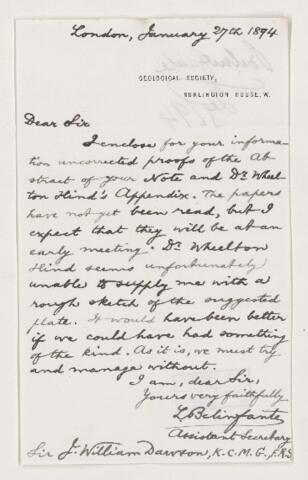 London, January 27th 1894.
GEOLOGICAL SOCIETY,
BURLINGTON HOUSE, W.
Dear Sir
I enclose for your informa-
tion uncorrected proofs of the Ab-
stract of your Note and Dr. Wheel-
ton Hind's Appendix. The papers
have not yet been read, but I
expect that they will be at an
early meeting. Dr. Wheelton
Hind seems unfortunately
unable to supply me with a
rough sketch of the suggested
plate. It would have been better
if we could have had something
of the kind. As it is, we must try
and manage without.
I am, dear Sir,
Yours very faithfully
L. Belinfante
Assistant Secretary
Sir J. William Dawson, K.C.M.G., F.R.S.